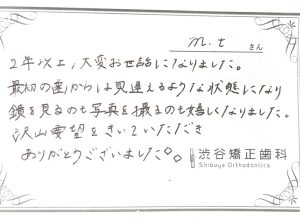 m.t さん
2年以上、大変お世話になりました。
最初の歯からは見違えるような状態になり
鏡を見るのも写真を撮るのも嬉しくなりました。
沢山要望をきいていただき
ありがとうございました。
渋谷矯正歯科
Shibuya Orthodontics